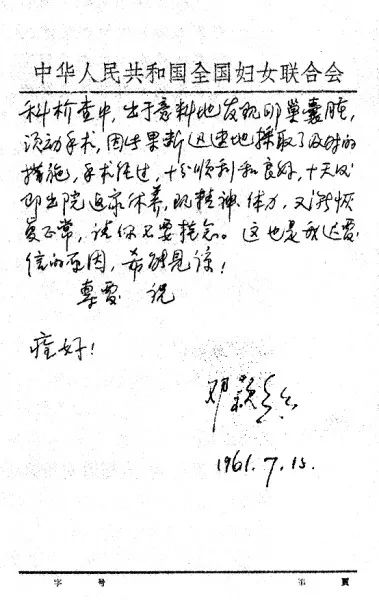 中华人民共和国全国妇女联合会
科检查中，出于意料地发现卵巢囊肿，
须动手术，因此果断迅速地採取了及时的
措施，手术经过，十分顺利和良好，十天以
即出院返家休养，现精神体力，又渐恢
复正常，请你不要挂念。这也是我迟覆
信的原因，希能见谅！
专覆 祝
痊好！
邓颖超
1961.7.15.
字 号 第 頁